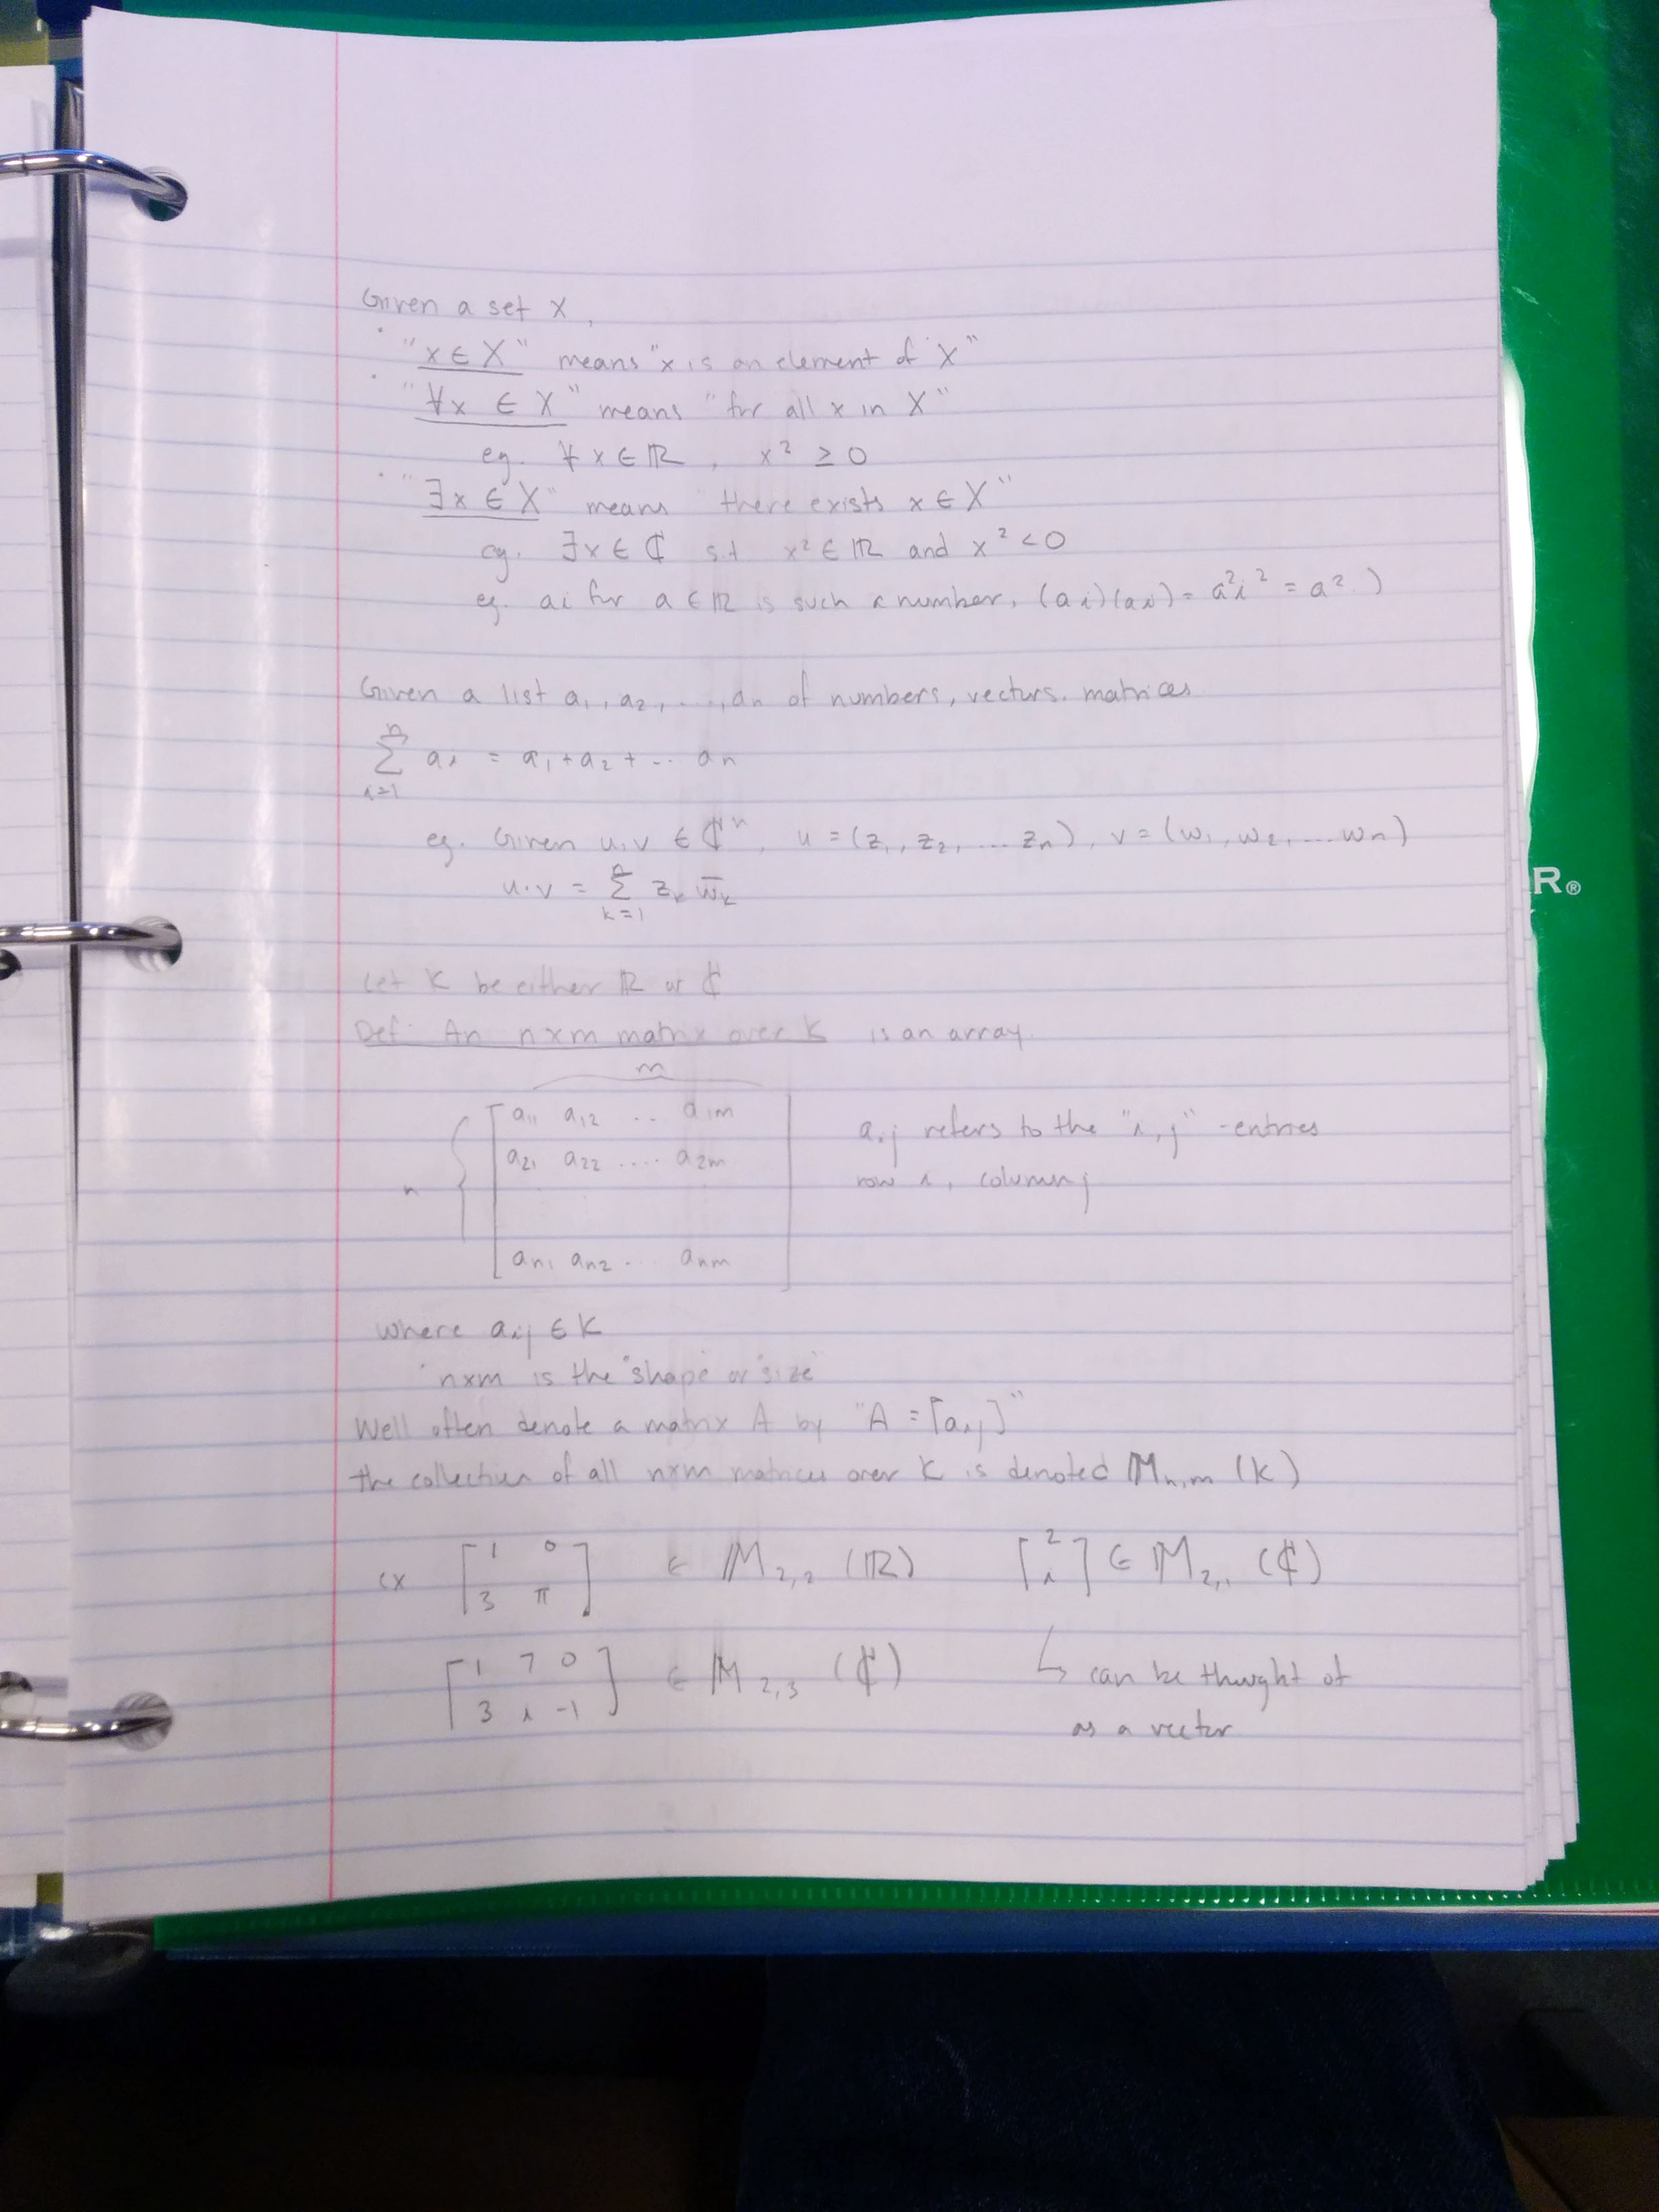 Given a set X,
"x ∈ X" means "x is an element of X"
"∀x ∈ X" means "for all x in X"
eg. ∀ x ∈ ℝ, x² ≥ 0
"∃x ∈ X" means "there exists x ∈ X"
eg. ∃x ∈ ℂ s.t x² ∈ ℝ and x² < 0
eg. ai for a ∈ ℝ is such a number, (ai)(ai) = a²i² = a² )
Given a list a₁, a₂, ..., aₙ of numbers, vectors, matrices
n
∑ aᵢ = a₁ + a₂ + ... aₙ
i=1
eg. Given u, v ∈ ℂⁿ, u = (z₁, z₂, ... zₙ), v = (w₁, w₂, ... wₙ)
n
u·v = ∑ zₖ w̄ₖ
k=1
R®
Let K be either ℝ or ℂ
Def: An n×m matrix over K is an array.
m
a₁₁ a₁₂ .. a₁ₘ
aᵢⱼ refers to the "i,j" -entries
a₂₁ a₂₂ .... a₂ₘ
row i, column j
n
aₙ₁ aₙ₂ ... aₙₘ
where aᵢⱼ ∈ K
n×m is the "shape" or "size"
Well often denote a matrix A by "A = [aᵢⱼ]"
the collection of all n×m matrices over K is denoted 𝕄ₙ,ₘ (K)
ex [1 0
3 π] ∈ 𝕄₂,₂ (ℝ)
[2
i] ∈ 𝕄₂,₁ (ℂ)
[1 7 0
3 i -1] ∈ 𝕄₂,₃ (ℂ)
↳ can be thought of
as a vector